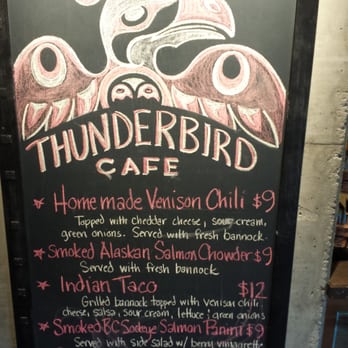 THUNDERBIRD
CAFE
Homemade Venison Chili $9
Topped with cheddar cheese, sour cream,
green onions. Served with fresh bannock.
Smoked Alaskan Salmon Chowder $9
Served with fresh bannock
Indian Taco $12
Grilled bannock topped with venison chili,
cheese, salsa, sour cream, lettuce, green onions
Smoked BC Sockeye Salmon Panini $9
Served with side salad w/ berry vinaigrette